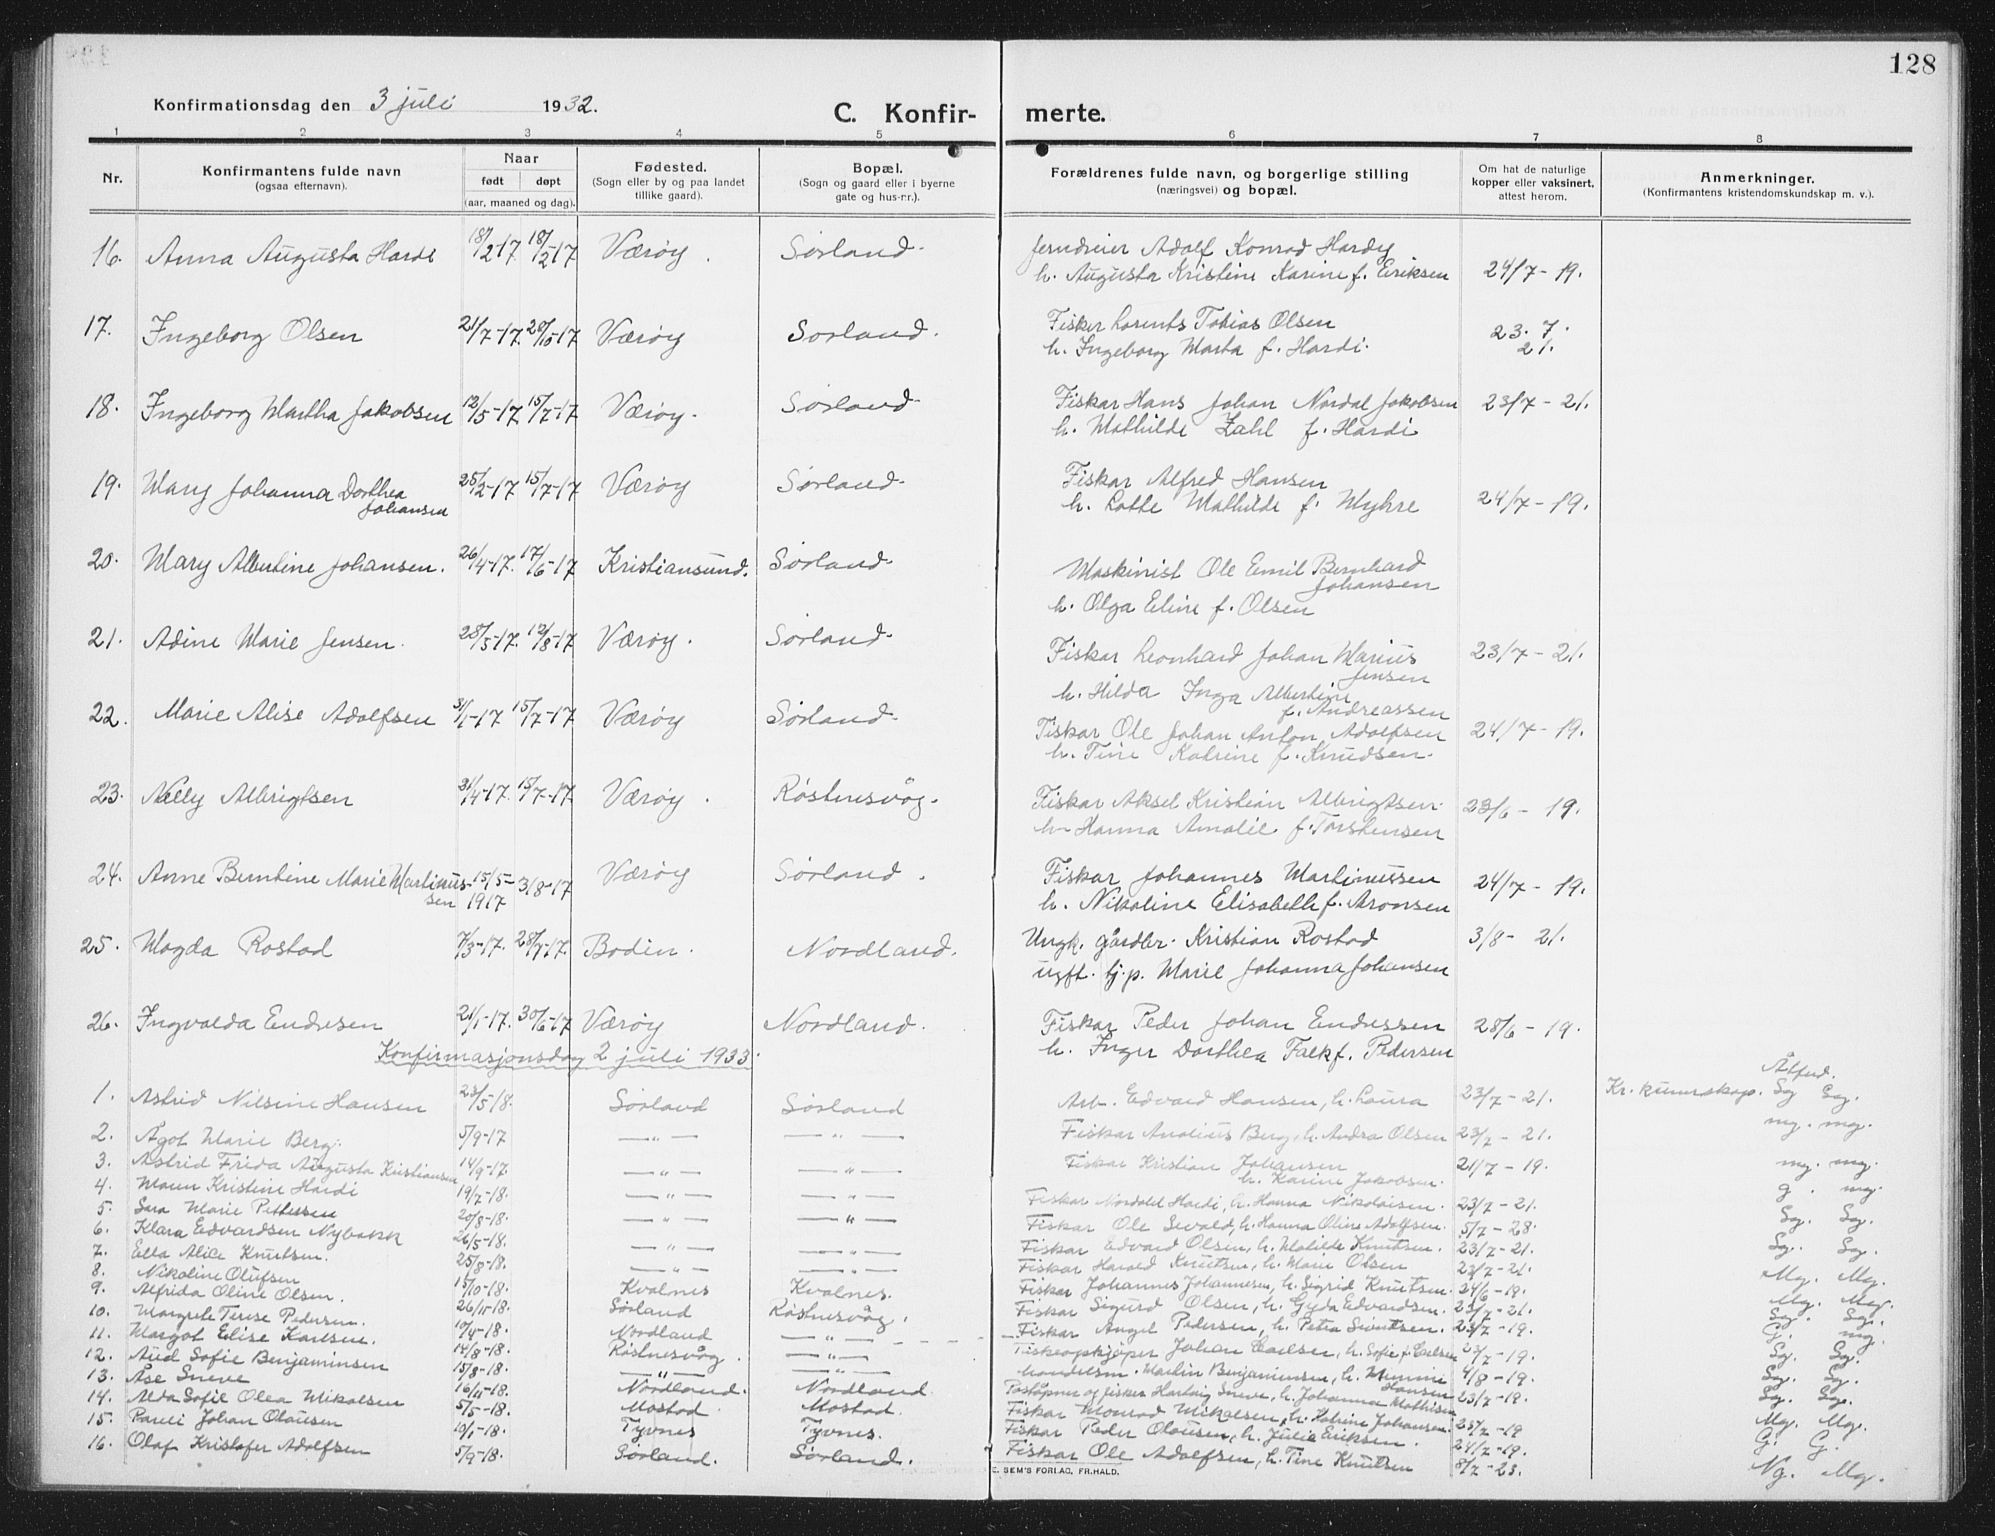 128
Konfirmationsdag den 3 juli 1932.
C. Konfir- merte.
1 2 3 4 5 6 7 8
Nr.
Konfirmantens fulde navn
(ogsaa efternavn).
Naar
født døpt
(aar, maaned og dag).
Fødested.
(Sogn eller by og paa landet
tillike gaard).
Bopæl.
(Sogn og gaard eller i byerne
gate og hus-nr.).
Forældrenes fulde navn, og borgerlige stilling
(næringsvei) og bopæl.
Om hat de naturlige
kopper eller vaksinert,
attest herom.
Anmerkninger.
(Konfirmantens kristendomskundskap m. v.).
16. Anna Augusta Hardi 18/2 17 18/2 17 Værøy. Sørland. Jerndreier Adolf Konrad Hardy
h. Augusta Kristine Karine f. Eriksen 24/7 - 19.
17. Ingeborg Olsen 21/7-17. 20/10-17 Værøy Sørland. Fisker Lorents Tobias Olsen 23. 7.
h. Ingeborg Marta f. Hardi. 21.
18. Ingeborg Martha Jakobsen 12/5-17 15/7-17 Værøy. Sørland. Fiskar Hans Johan Nordal Jakobsen 23/7 - 21.
h. Mathilde Zahl f. Hardi
19. Mary Johanna Dorthea 25/2-17 15/7-17 Værøy Sørland. Fiskar Alfred Hansen
Johansen h. Lotte Mathilde f. Myhre 24/7 - 19.
20. Mary Albertine Johansen. 26/4-17. 17/6-17 Kristiansund. Sørland. Maskinist Ole Emil Bernhard
Johansen
h. Olga Eline f. Olsen
21. Adine Marie Jensen. 28/5-17. 12/8-17 Værøy. Sørland. Fiskar Leonhard Johan Marius 23/7 - 21.
Jensen
h. Hilda Inga Albertine
f. Andreassen
22. Marie Alise Adolfsen 31/1-17 15/7-17 Værøy Sørland. Fiskar Ole Johan Anton Adolfsen 24/7 - 19.
h. Tine Katrine f. Knudsen.
23. Nelly Albrigtsen 31/4-17. 15/7-17. Værøy. Røstnesvåg. Fiskar Aksel Kristian Albrigtsen. 23/6 - 19.
h. Hanna Amalie f. Torstensen
24. Anne Berntine Marie Martinus- 15/5- 3/8-17 Værøy Sørland. Fiskar Johannes Martinussen 24/7 - 19.
sen 1917 h. Nikoline Elisabeth f. Aronsen
25. Magda Rostad 7/3-17. 28/7-17. Bodin. Nordland. Ungk. gårdbr. Kristian Rostad 3/8 - 21.
ugft. tj.p. Marie Johanna Johansen
26. Ingvalda Endresen 21/1-17. 30/6-17 Værøy Nordland. Fiskar Peder Johan Endressen 28/6 - 19.
h. Inger Dorthea Falk f. Pedersen
Konfirmasjonsdag 2 juli 1933.
Åtfud.
1. Astrid Nilsine Hansen 23/5-18. Sørland Sørland Arb. Edvard Hansen, h. Laura 23/7 - 21. Kr. kunnskap. Sg Sg.
2. Ågot Marie Berg. 5/9-17 — " — — " — Fiskar Analius Berg, h. Andra Olsen 23/7 - 21. mg. mg.
3. Astrid Frida Augusta Kristiansen 14/9-17. — " — — " — Fiskar Kristian Johansen 21/7 - 19. mg. mg.
h. Karine Jakobsen.
4. Maren Kristine Hardi 19/7-18. — " — — " — Fiskar Nordahl Hardi, h. Hanna Nikolaisen. 23/7 - 21. g. mg.
5. Sara Marie Pettersen 20/8-18. — " — — " — Fiskar Ole Sewald, h. Hanna Oline Adolfsen. 5/7 - 28. Sg. Sg.
6. Klara Edvardsen Nybakk 26/5-18. — " — — " — Fiskar Edvard Olsen, h. Matilde Knutsen. 23/7 - 21. Sg. Sg.
7. Ella Alice Knutsen. 25/8-18. — " — — " — Fiskar Harald Knutsen, h. Marie Olsen 23/7 - 21. Mg. Mg.
8. Nikoline Olufsen 15/10-18. Kvalnes Kvalnes. Fiskar Johannes Johannesen, h. Sigrid Knutsen. 24/6 - 19. Mg. Mg.
9. Alfrida Oline Olsen. 26/11-18. Sørland Røstnesvåg. Fiskar Sigurd Olsen, h. Gyda Edvardsen. 23/7 - 21. Sg. Sg.
10. Margrete Terese Pedersen. 10/4-18. Nordland — " — Fiskar Angel Pedersen, h. Petra Sivertsen. 23/7 - 19. G. mg.
11. Margot Elise Karlsen. 14/8-18. Røstnesvåg. — " — Fiskeoppkjøper Johan Carlsen, h. Sofie f. Carlsen 23/7 - 19. Sg. Sg.
12. Aud Sofie Benjaminsen 15/8-18. — " — — " — Handelsm. Martin Benjaminsen, h. Mimmi 4/8 - 19. Sg. Sg.
Hansen
13. Åse Sneve 16/11-18. Nordland. Nordland. Poståpner og fisker Hartvig Sneve, h. Johanna Mathisen 23/7 - 19. Sg. Sg.
14. Alda Sofie Olea Mikalsen 5/5-18. Mostad. Mostad. Fiskar Monrad Mikalsen, h. Katrine Johansen. 25/7 - 19 Mg. Mg.
15. Pareli Johan Olausen 10/1-18. Tyvnes Tyvnes. Fiskar Peder Olausen, h. Julie Eriksen. 24/7 - 19. G. G.
16. Olaf Kristofer Adolfsen 5/9-18. Sørland. Sørland. Fiskar Ole Adolfsen, h. Tine Knutsen 8/7 - 23. Ng. Mg.
E. SEM'S FORLAG, FR.HALD.